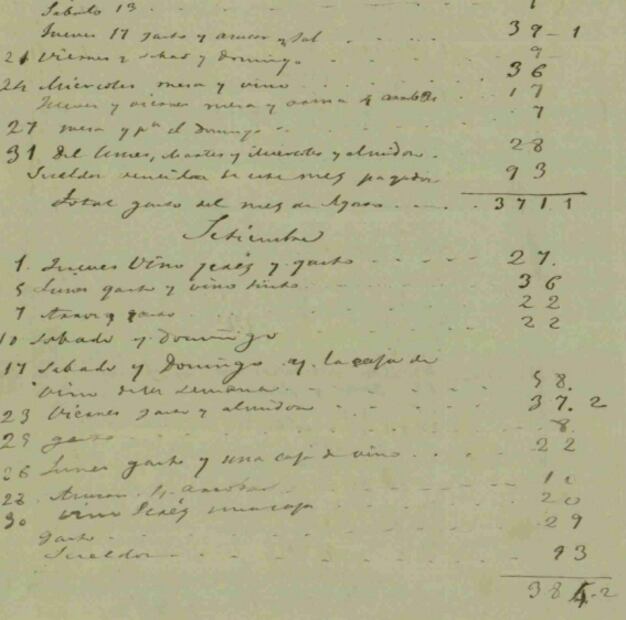 Sabado 13
Jueves 17 gasto y azucar y sal 39-1
21 Viernes y Sabado y Domingo 9
24 Miercoles mesa y vino 36
Jueves y viernes mesa y 4 arrobas 17
27 mesa y pª el Domingo 7
31 del Lunes, Martes y Miercoles y almidon 28
Sueldos de este mes pagados 93
Total gasto del mes de Agosto 371 1
Setiembre
1. Jueves Vino jeréz y gasto 27.
5 Lunes gasto y vino tinto 36
7 Arroz y gasto 22
22
10 Sabado y Domingo
17 Sabado y Domingo y la caja de
vino de la semana 58.
23 Viernes gasto y almidon 37. 2
25 gasto 8.
26 Lunes gasto y una caja de vino 22
28 4 arrobas
30 vino Jeréz una caja 20
gasto 29
Sueldos 93
384-2